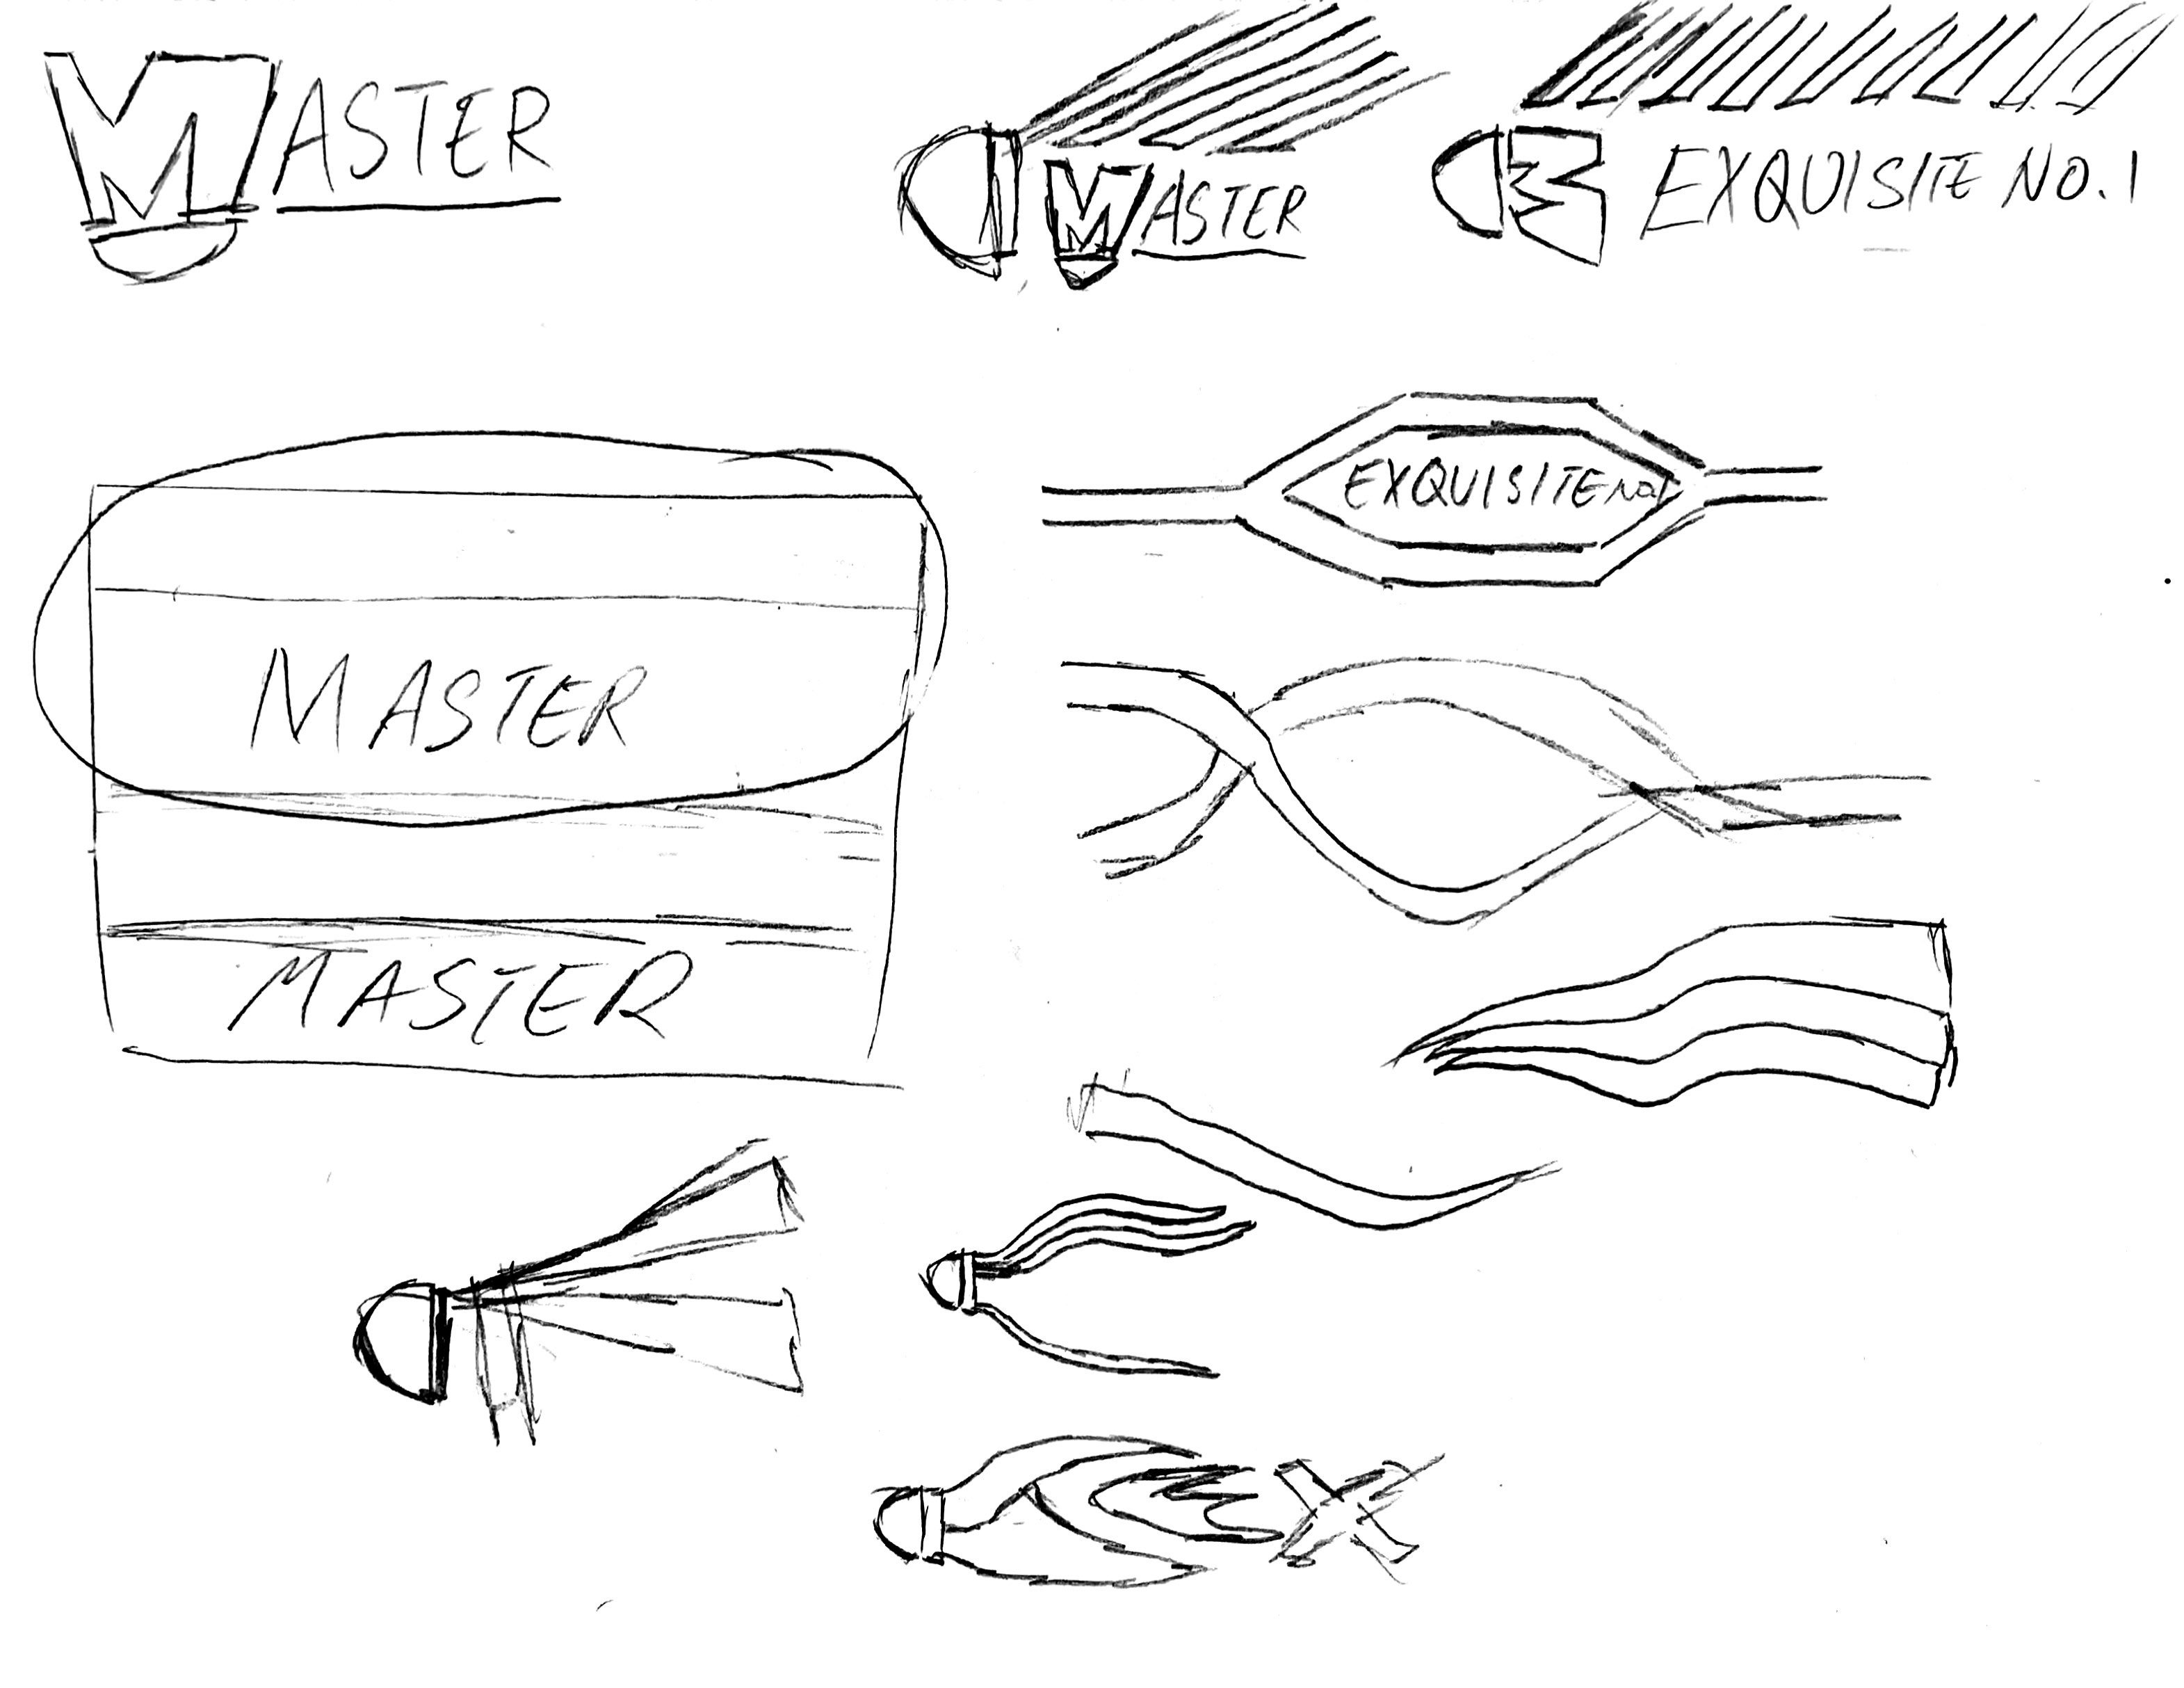 MASTER
MASTER
EXQUISITE NO. 1
EXQUISITE NO1
MASTER
MASTER